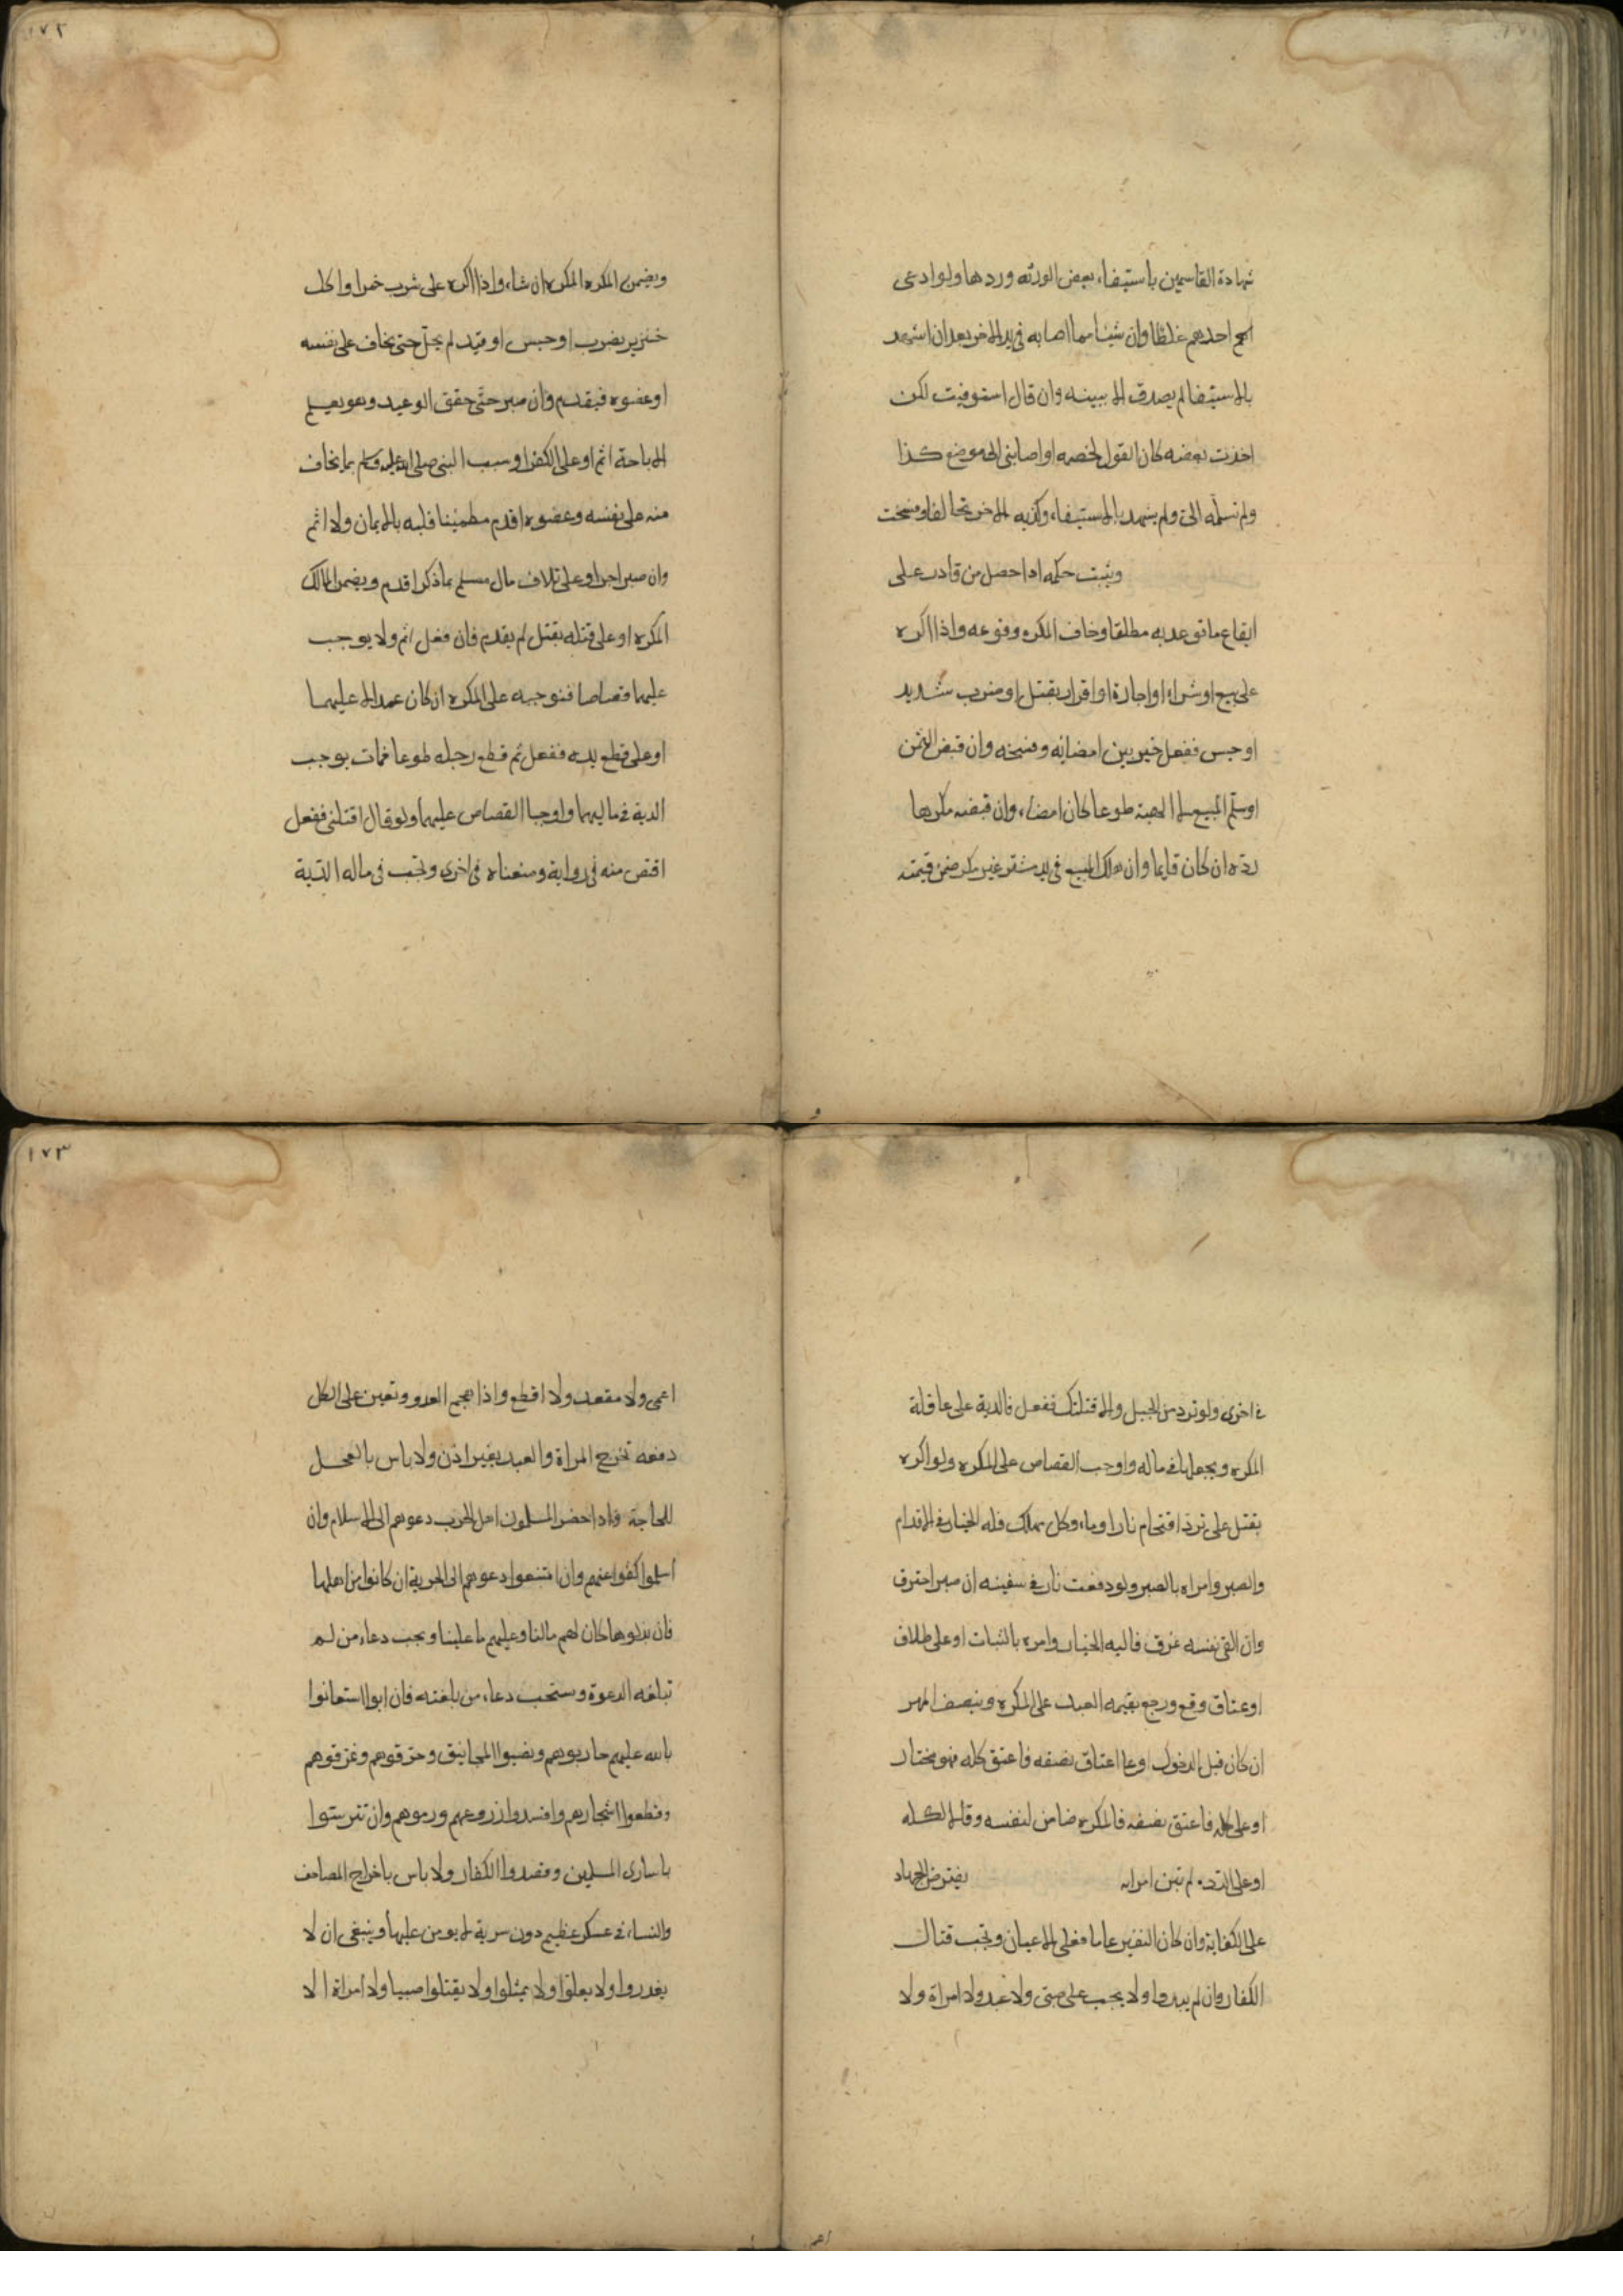 شهادة القاسمين باستيفاء بعض الورثه وردها ولو ادعى
احدهم غلطا وان شيئا مما اصابه في يد الاخر بعد ان اشهد
بالاستيفا لم يصدق الا ببينه وان قال استوفيت لكن
اخذت بعضه كان القول لخصمه او اصابني الى موضع كذا
ولم تسلمه الى ولم يشهد بالاستيفاء وكذبه الاخر تحالفا وفسخت
ويثبت حكمه اذا حصل من قادر على
ايقاع ما توعد به مطلقا وخاف المكره وقوعه واذا اكره
على بيع او شراء او اجارة او اقرار بقتل او ضرب شديد
او حبس ففعل خير بين امضائه وفسخه وان قبض الثمن
او سلم المبيع لا الهبة طوعا كان امضاء وان قبضه مكرها
رده ان كان قايما وان هلك المبيع في يد مشتر غير مكره ضمن قيمته
١٧٢
ويضمن المكره المكره ان شاء واذا اكره على شرب خمر او اكل
خنزير بضرب او حبس او قيد لم يحل حتى يخاف على نفسه
او عضوه فيقدم وان صبر حتى حقق الوعيد وهو يعلم
الاباحة اثم او على الكفر او سب النبي صلى الله عليه وسلم بما يخاف
منه على نفسه وعضوه اقدم مطمئنا قلبه بالايمان ولا اثم
وان صبر اجر او على اتلاف مال مسلم بما ذكر اقدم ويضمن المالك
المكره او على قتله بقتل لم يقدم فان فعل اثم ولا يوجب
عليهما قصاصا فنوجبه على المكره ان كان عمدا لا عليهما
او على قطع يده ففعل ثم قطع رجله طوعا فمات يوجب
الدية في ماليهما واوجبا القصاص عليهما ولو قال اقتلني ففعل
اقتص منه في رواية ومنعناه في اخرى وتجب في ماله الدية
في اخرى ولو ترد من الجبل والا قتلتك ففعل فالدية على عاقلة
المكره ويجعلها في ماله واوجب القصاص على المكره ولو اكره
بقتل على ترد اقتحام نار او ماء وكل مهلك فله الخيار في الاقدام
والصبر وامراه بالصبر ولو دفعت نار في سفينه ان صبر احترق
وان القى نفسه غرق فاليه الخيار وامره بالثبات او على طلاق
او عتاق وقع ورجع بقيمه العبد على المكره وبنصف المهر
ان كان قبل الدخول او على اعتاق نصفه فاعتق كله فهو مختار
او على كله فاعتق نصفه فالمكره ضامن لنفسه وقالا لكله
او على الردة لم تبن امراته يفترض الجهاد
على الكفاية وان كان النفير عاما فعلى الاعيان ويجب قتال
الكفار وان لم يبدوا ولا يجب على صبي ولا عبد ولا امراة ولا
١٧٣
اعمى ولا مقعد ولا اقطع واذا هجم العدو وتعين على الكل
دفعه تخرج المراة والعبد بغير اذن ولا باس بالجعل
للحاجة واذا حضر المسلمون اهل الحرب دعوهم الى الاسلام وان
اسلموا كفوا عنهم وان امتنعوا دعوهم الى الجزية ان كانوا من اهلها
فان بذلوها كان لهم مالنا وعليهم ما علينا ويجب دعاء من لم
تبلغه الدعوة ويستحب دعاء من بلغته فان ابوا استعانوا
بالله عليهم حاربوهم ونصبوا المجانيق وحرقوهم وغرقوهم
وقطعوا اشجارهم وافسدوا زروعهم ورموهم وان تترستوا
باسارى المسلمين وقصدوا الكفار ولا باس باخراج المصاحف
والنساء في عسكر عظيم دون سرية لا يومن عليها وينبغي ان لا
يغدروا ولا يغلوا ولا يمثلوا ولا يقتلوا صبيا ولا امراة الا